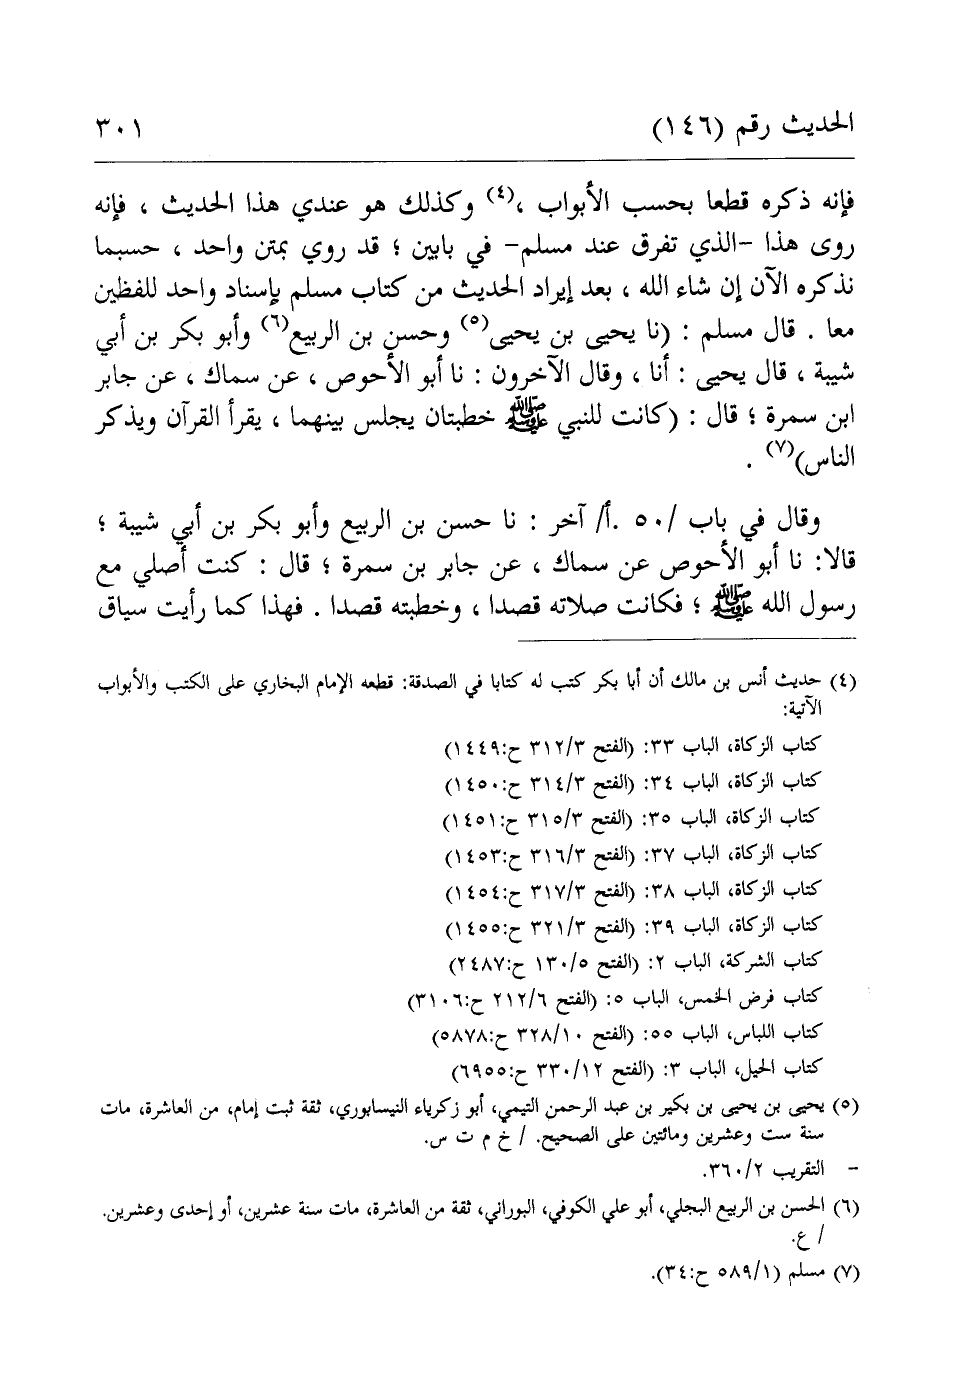 الحديث رقم (١٤٦) ٣٠١
فإنه ذكره قطعا بحسب الأبواب ،(٤) وكذلك هو عندي هذا الحديث ، فإنه
روى هذا -الذي تفرق عند مسلم- في بابين ؛ قد روي بمتن واحد ، حسبما
نذكره الآن إن شاء الله ، بعد إيراد الحديث من كتاب مسلم بإسناد واحد للفظين
معا . قال مسلم : (نا يحيى بن يحيى(٥) وحسن بن الربيع(٦) وأبو بكر بن أبي
شيبة ، قال يحيى : أنا ، وقال الآخرون : نا أبو الأحوص ، عن سماك ، عن جابر
ابن سمرة ؛ قال : (كانت للنبي ﷺ خطبتان يجلس بينهما ، يقرأ القرآن ويذكر
الناس)(٧) .
وقال في باب /٥٠ .أ/ آخر : نا حسن بن الربيع وأبو بكر بن أبي شيبة ؛
قالا: نا أبو الأحوص عن سماك ، عن جابر بن سمرة ؛ قال : كنت أصلي مع
رسول الله ﷺ ؛ فكانت صلاته قصدا ، وخطبته قصدا . فهذا كما رأيت سياق
(٤) حديث أنس بن مالك أن أبا بكر كتب له كتابا في الصدقة: قطعه الإمام البخاري على الكتب والأبواب
الآتية:
كتاب الزكاة، الباب ٣٣: (الفتح ٣١٢/٣ ح:١٤٤٩)
كتاب الزكاة، الباب ٣٤: (الفتح ٣١٤/٣ ح:١٤٥٠)
كتاب الزكاة، الباب ٣٥: (الفتح ٣١٥/٣ ح:١٤٥١)
كتاب الزكاة، الباب ٣٧: (الفتح ٣١٦/٣ ح:١٤٥٣)
كتاب الزكاة، الباب ٣٨: (الفتح ٣١٧/٣ ح:١٤٥٤)
كتاب الزكاة، الباب ٣٩: (الفتح ٣٢١/٣ ح:١٤٥٥)
كتاب الشركة، الباب ٢: (الفتح ١٣٠/٥ ح:٢٤٨٧)
كتاب فرض الخمس، الباب ٥: (الفتح ٢١٢/٦ ح:٣١٠٦)
كتاب اللباس، الباب ٥٥: (الفتح ٣٢٨/١٠ ح:٥٨٧٨)
كتاب الحيل، الباب ٣: (الفتح ٣٣٠/١٢ ح:٦٩٥٥)
(٥) يحيى بن يحيى بن بكير بن عبد الرحمن التيمي، أبو زكرياء النيسابوري، ثقة ثبت إمام، من العاشرة، مات
سنة ست وعشرين ومائتين على الصحيح. / خ م ت س.
- التقريب ٣٦٠/٢.
(٦) الحسن بن الربيع البجلي، أبو علي الكوفي، البوراني، ثقة من العاشرة، مات سنة عشرين، أو إحدى وعشرين.
/ ع.
(٧) مسلم (٥٨٩/١ ح:٣٤).